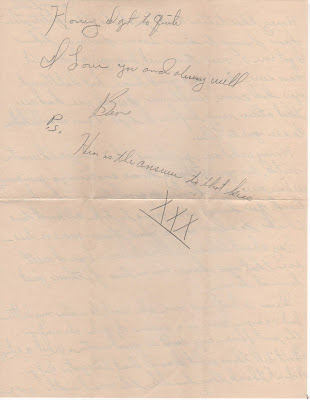 Honey I got to quite
I Love you and always will
Ben
P.S.
Here is the answer to that kiss
XXX